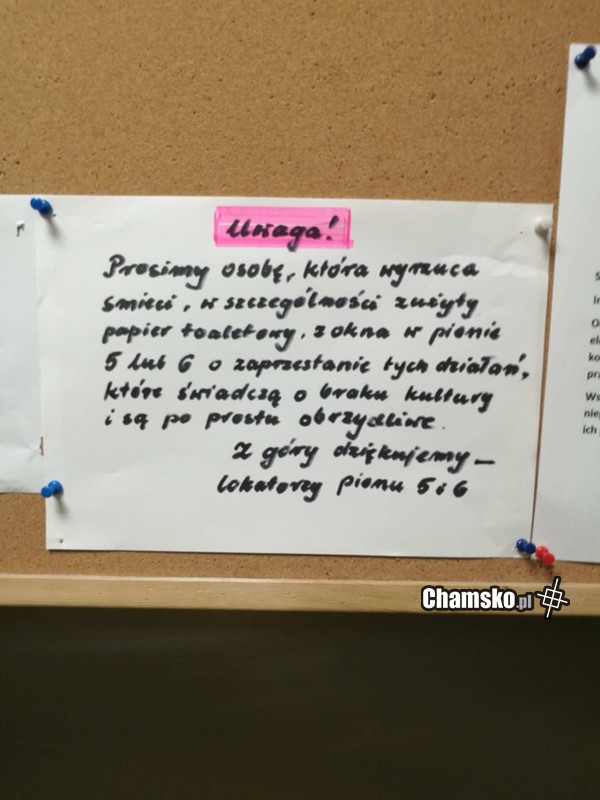 Uwaga!
Prosimy osobę, która wyrzuca
śmieci, w szczególności zużyty
papier toaletowy, z okna w pionie
5 lub 6 o zaprzestanie tych działań,
które świadczą o braku kultury
i są po prostu obrzydliwe.
Z góry dziękujemy –
lokatorzy pionu 5 i 6
Chamsko.pl